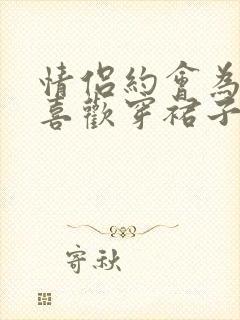 情侶約會為
喜歡穿裙子
寄秋